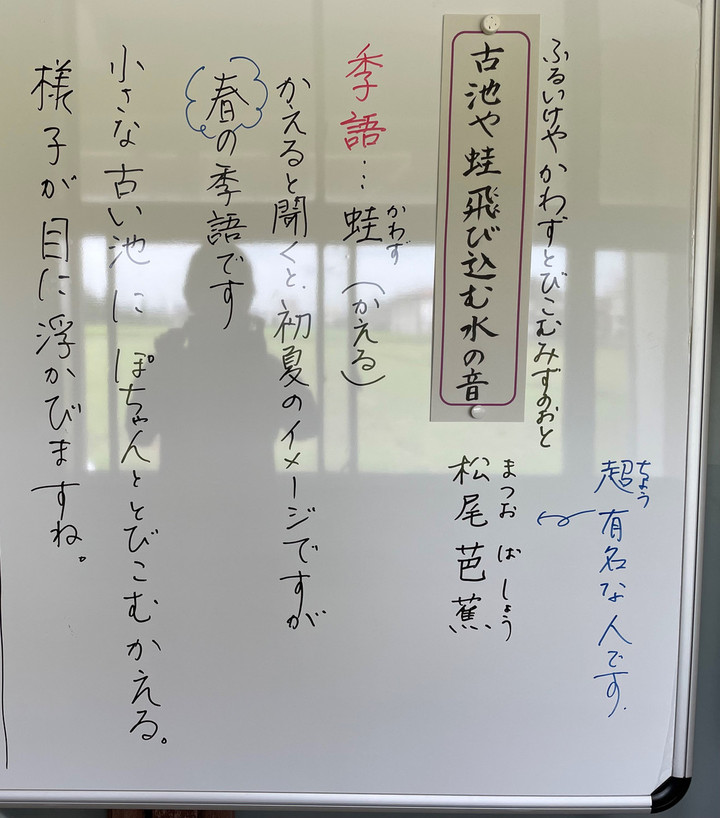 ふるいけや かわずとびこむみずのおと
古池や蛙飛び込む水の音
超有名な人です.
ちょう
まつお ばしょう
松尾 芭蕉
季語…蛙(かえる)
かわず
かえると聞くと、初夏のイメージですが
春の季語です
小さな古い池に ぽちゃんととびこむかえる。
様子が目に浮かびますね。